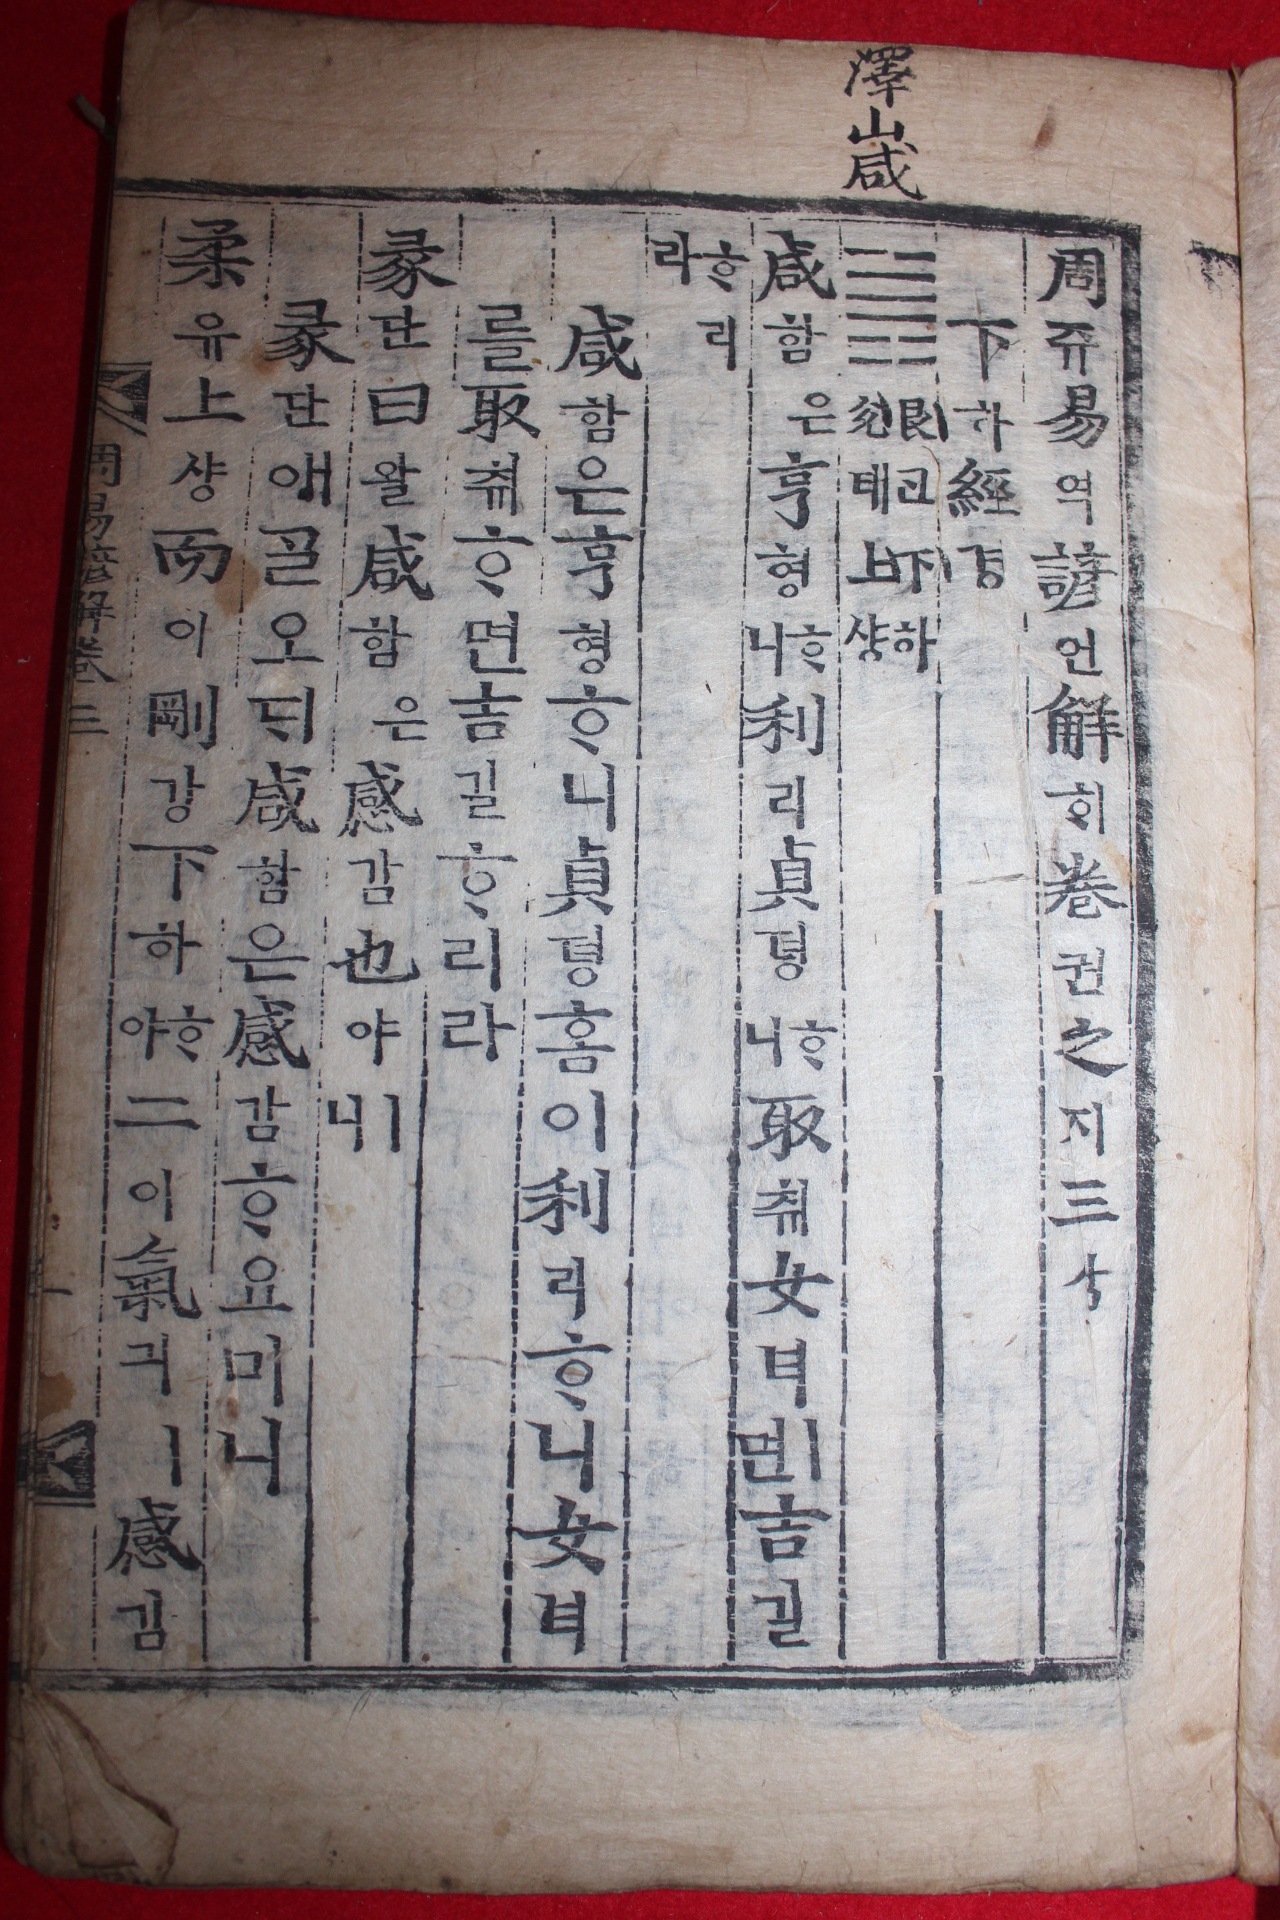 澤山咸
周쥬易역諺언解ᄒᆡ卷권之지三
下하經경
䷞艮ᄀᆞᆫ下하兌태上샹
咸함은亨형ᄒᆞ니利리貞뎡ᄒᆞ니取ᄎᆔ女녀ㅣ면吉길
ᄒᆞ리라
咸함은亨형ᄒᆞ니貞뎡홈이利리ᄒᆞ니女녀
를取ᄎᆔᄒᆞ면吉길ᄒᆞ리라
彖단曰왈咸함은感감也야ㅣ니
彖단애ᄀᆞᆯ오ᄃᆡ咸함은感감ᄒᆞ요미니
柔유上샹而이剛강下하ᄒᆞ야二이氣긔ㅣ感감
周易諺解卷三
一